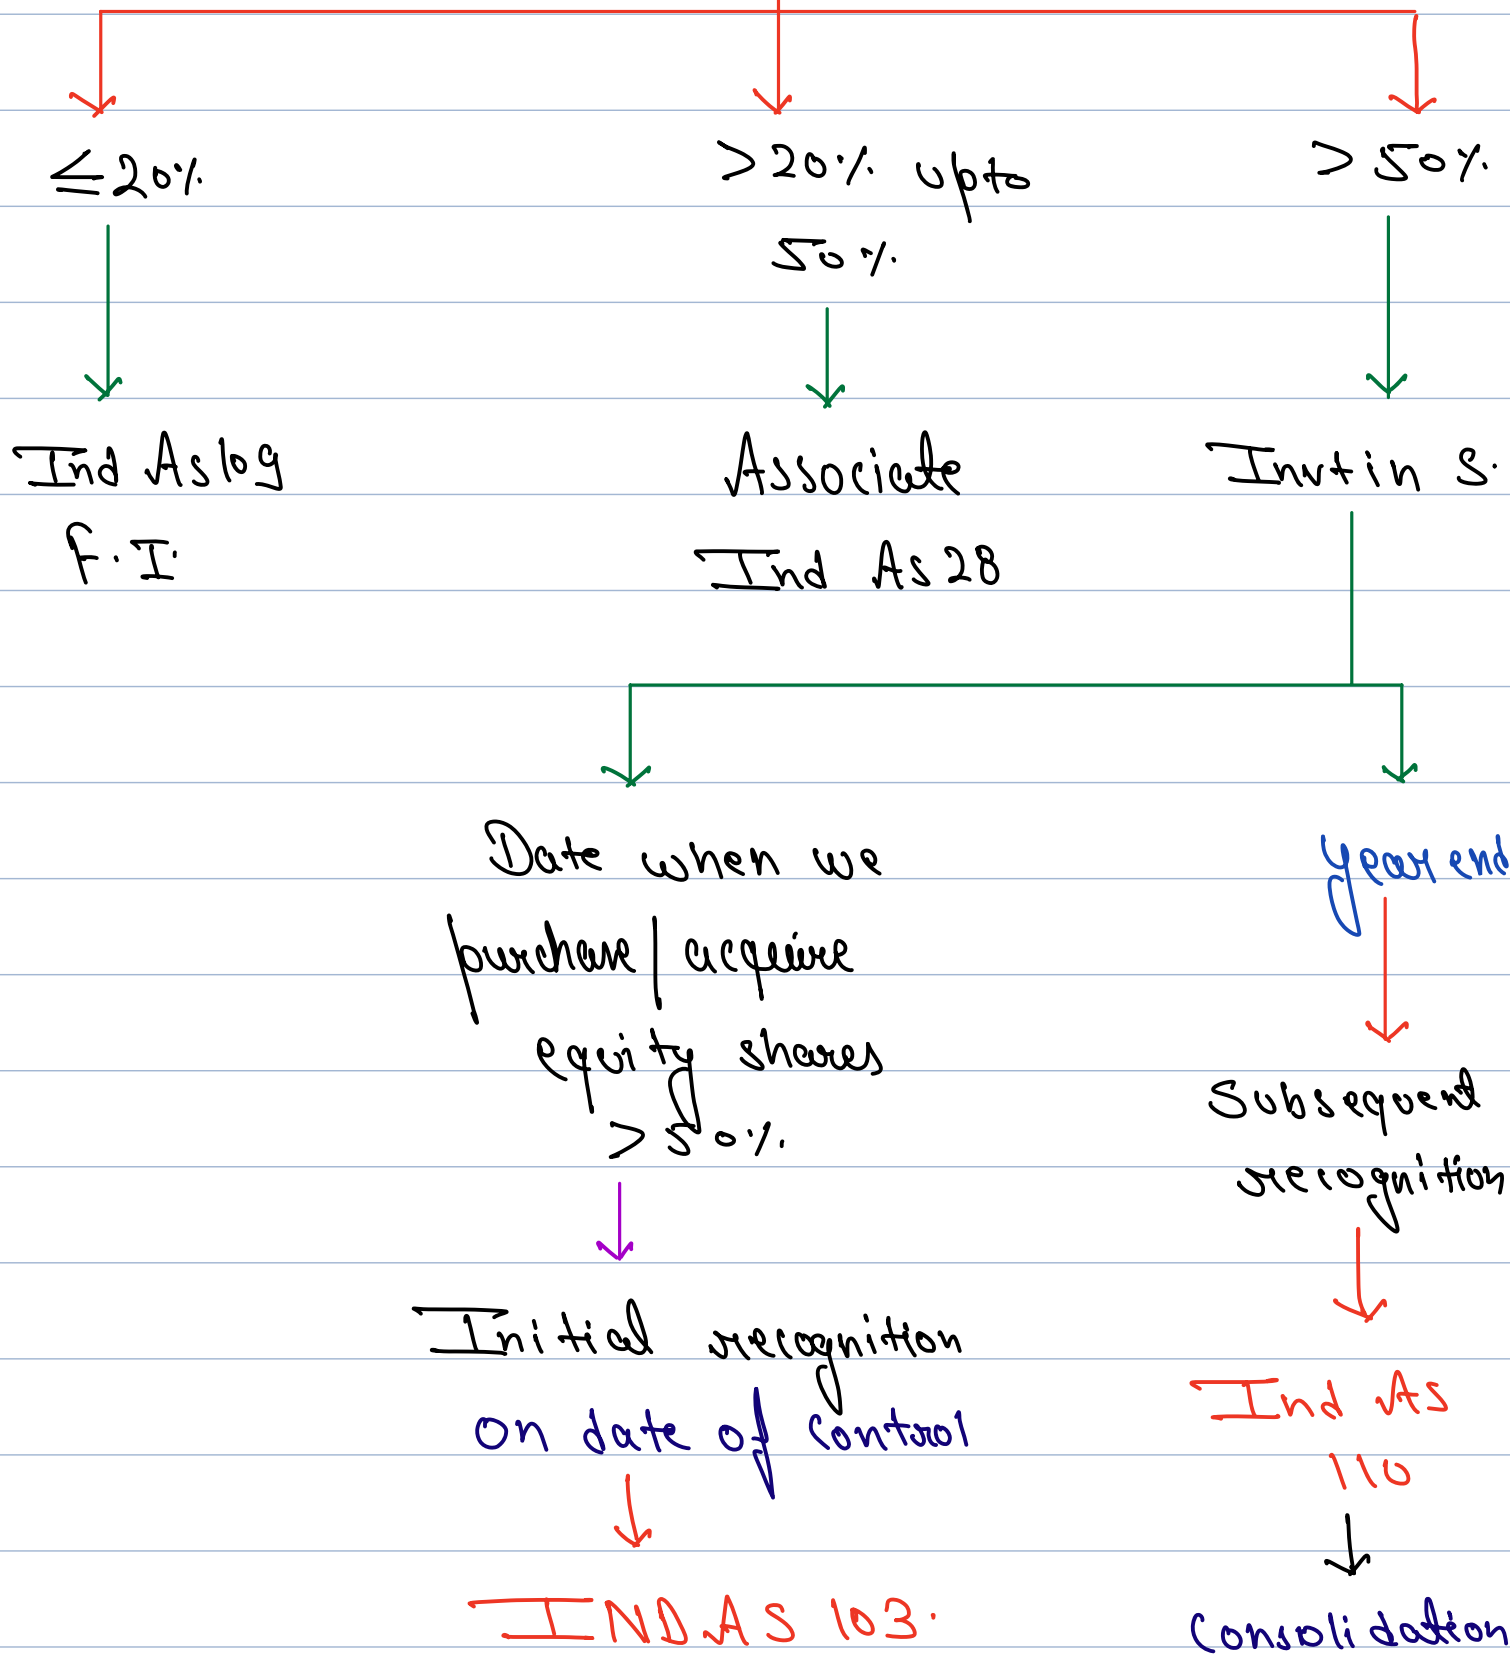 ≤20%
>20% upto
50%
>50%
Ind As 109
F.I.
Associate
Ind As 28
Invt in S.
Date when we
purchase/acquire
equity shares
>50%
Initial recognition
on date of control
IND AS 103.
year end
Subsequent
recognition
Ind As
110
Consolidation